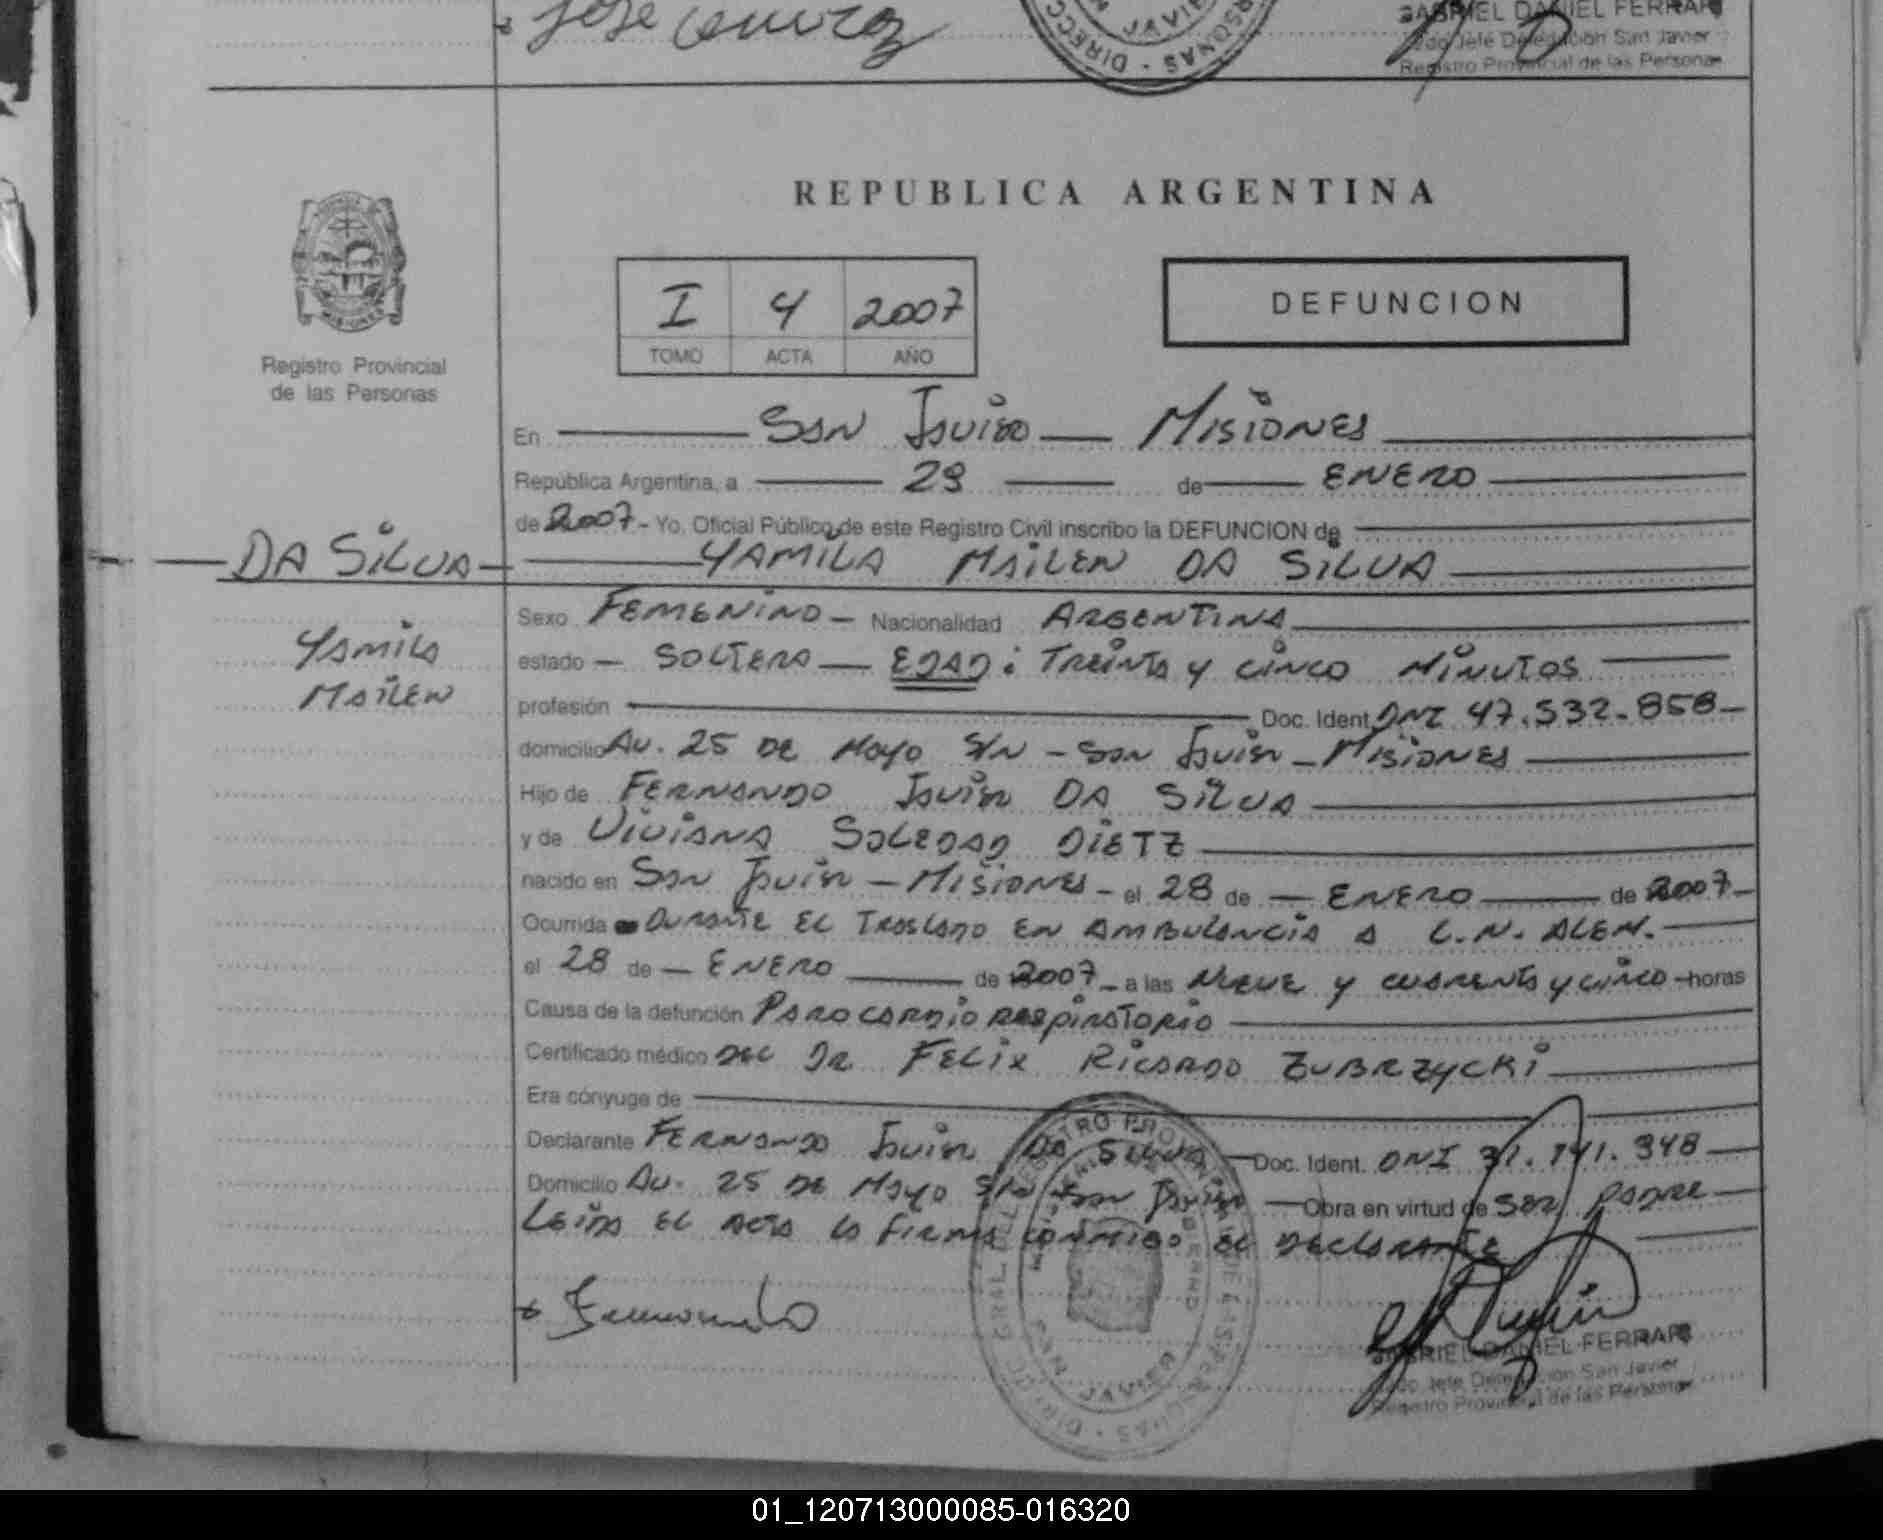 Jose
GABRIEL DANIEL FERRARI
Jefe Delegación San Javier
Registro Provincial de las Personas
REPUBLICA ARGENTINA
I 4 2007
TOMO ACTA AÑO
DEFUNCION
MISIONES
Registro Provincial
de las Personas
En San Javier Misiones
República Argentina, a 29 de ENERO
de 2007 - Yo, Oficial Público de este Registro Civil inscribo la DEFUNCION de
DA SILVA YAMILA MAILEN DA SILVA
Yamila
Mailen
Sexo FEMENINO - Nacionalidad ARGENTINA
estado - SOLTERA - EDAD: TREINTA y CINCO MINUTOS
profesión Doc. Ident. DNI 47.532.858-
domicilio AV. 25 DE MAYO S/N - San Javier - MISIONES
Hijo de FERNANDO Javier DA SILVA
y de VIVIANA SOLEDAD DIETZ
nacido en San Javier - MISIONES - el 28 de - ENERO de 2007-
Ocurrida - DURANTE EL TRASLADO EN AMBULANCIA A L.N. ALEM.
el 28 de - ENERO de 2007 - a las NUEVE y CUARENTA y CINCO - horas
Causa de la defunción PARO CARDIO RESPIRATORIO
Certificado médico DEL DR FELIX RICARDO ZUBRZYCKI
Era cónyuge de
Declarante FERNANDO Javier DA SILVA - Doc. Ident. DNI 31.141.348
Domicilio AV. 25 DE MAYO S/N San Javier - Obra en virtud de SER PADRE
LEIDA EL ACTA LA FIRMA CONMIGO EL DECLARANTE
Fernando
SAN JAVIER
GABRIEL DANIEL FERRARI
Jefe Delegación San Javier
Registro Provincial de las Personas
01_120713000085-016320